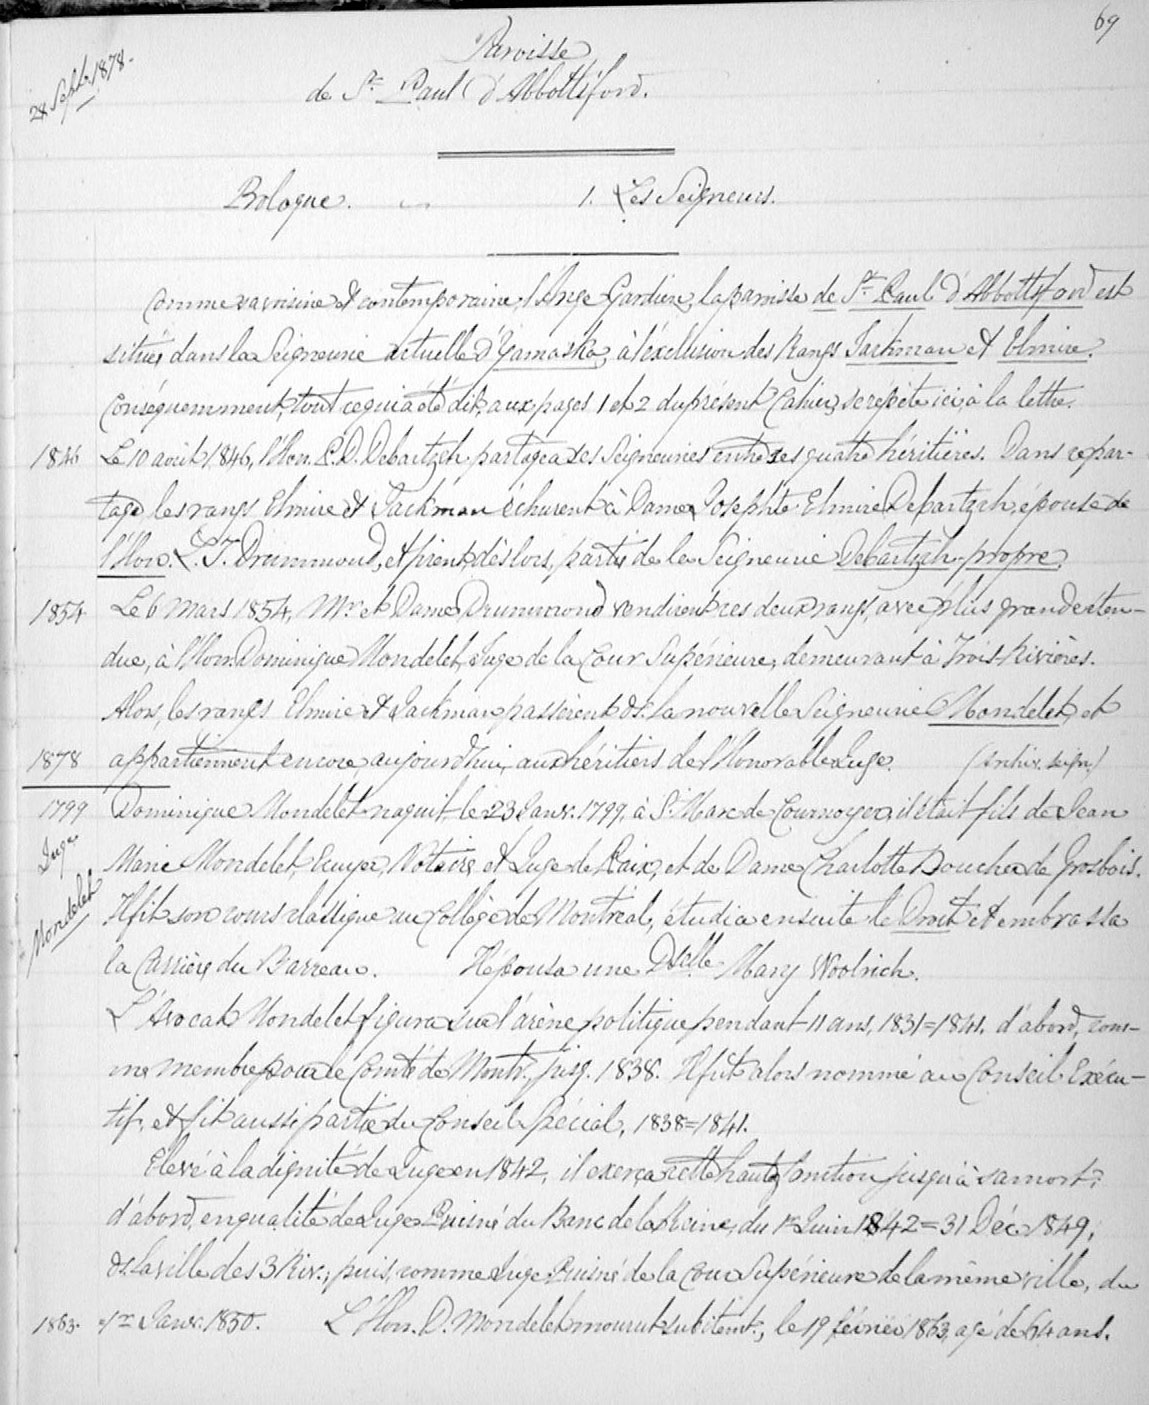 69
28 Septb. 1878.
Paroisse
de St. Paul d'Abbottsford.
Prologue. 1. Les Seigneurs.
Comme sa voisine et contemporaine, l'Ange Gardien, la paroisse de St. Paul d'Abbottsford est
située dans la Seigneurie actuelle d'Yamaska, à l'exclusion des Rangs Jackman et Elmire.
Conséquemment, tout ce qui a été dit, aux pages 1 et 2 du présent Cahier, se répète ici, à la lettre.
1846 Le 10 août 1846, l'Hon. P. D. Debartzch partagea ses Seigneuries entre ses quatre héritières. Dans ce par-
tage les rangs Elmire et Jackman échurent à Dame Josephte Elmire Debartzch, épouse de
l'Hon. L. T. Drummond, et firent, dès lors, partie de la Seigneurie Debartzch-propre.
1854 Le 6 Mars 1854, Mr. et Dame Drummond vendirent ces deux rangs, avec plus grande éten-
due, à l'Hon. Dominique Mondelet, Juge de la Cour Supérieure, demeurant à Trois-Rivières.
Alors, les rangs Elmire et Jackman passèrent ds. la nouvelle Seigneurie Mondelet, et
1878 appartiennent encore, aujourd'hui, aux héritiers de l'Honorable Juge. (Archiv. seign.)
1799 Dominique Mondelet naquit le 23 Janv. 1799, à St. Marc de Cournoyer; il était fils de Jean
Juge Mondelet
Marie Mondelet, Ecuyer, Notaire et Juge de Paix, et de Dame Charlotte Boucher de Grosbois.
Il fit son cours classique au Collège de Montréal, étudia ensuite le Droit et embrassa
la Carrière du Barreau. Il épousa une Dselle Mary Woolrich.
L'Avocat Mondelet figura sur l'arène politique pendant 11 ans, 1831=1841. d'abord, com-
me membre pour le Comté de Montr., jusq. 1838. Il fut alors nommé au Conseil Exécu-
tif, et fit aussi partie du Conseil Spécial, 1838=1841.
Elevé à la dignité de Juge en 1842, il exerça cette haute fonction jusqu'à sa mort:
d'abord, en qualité de Juge Puisné du Banc de la Reine, du 1er Juin 1842=31 Déc. 1849,
ds. la ville des 3 Riv.; puis, comme Juge Puisné de la Cour Supérieure de la même ville, du
1863. 1er Janv. 1850. L'Hon. D. Mondelet mourut subitemt., le 19 février 1863, agé de 64 ans.